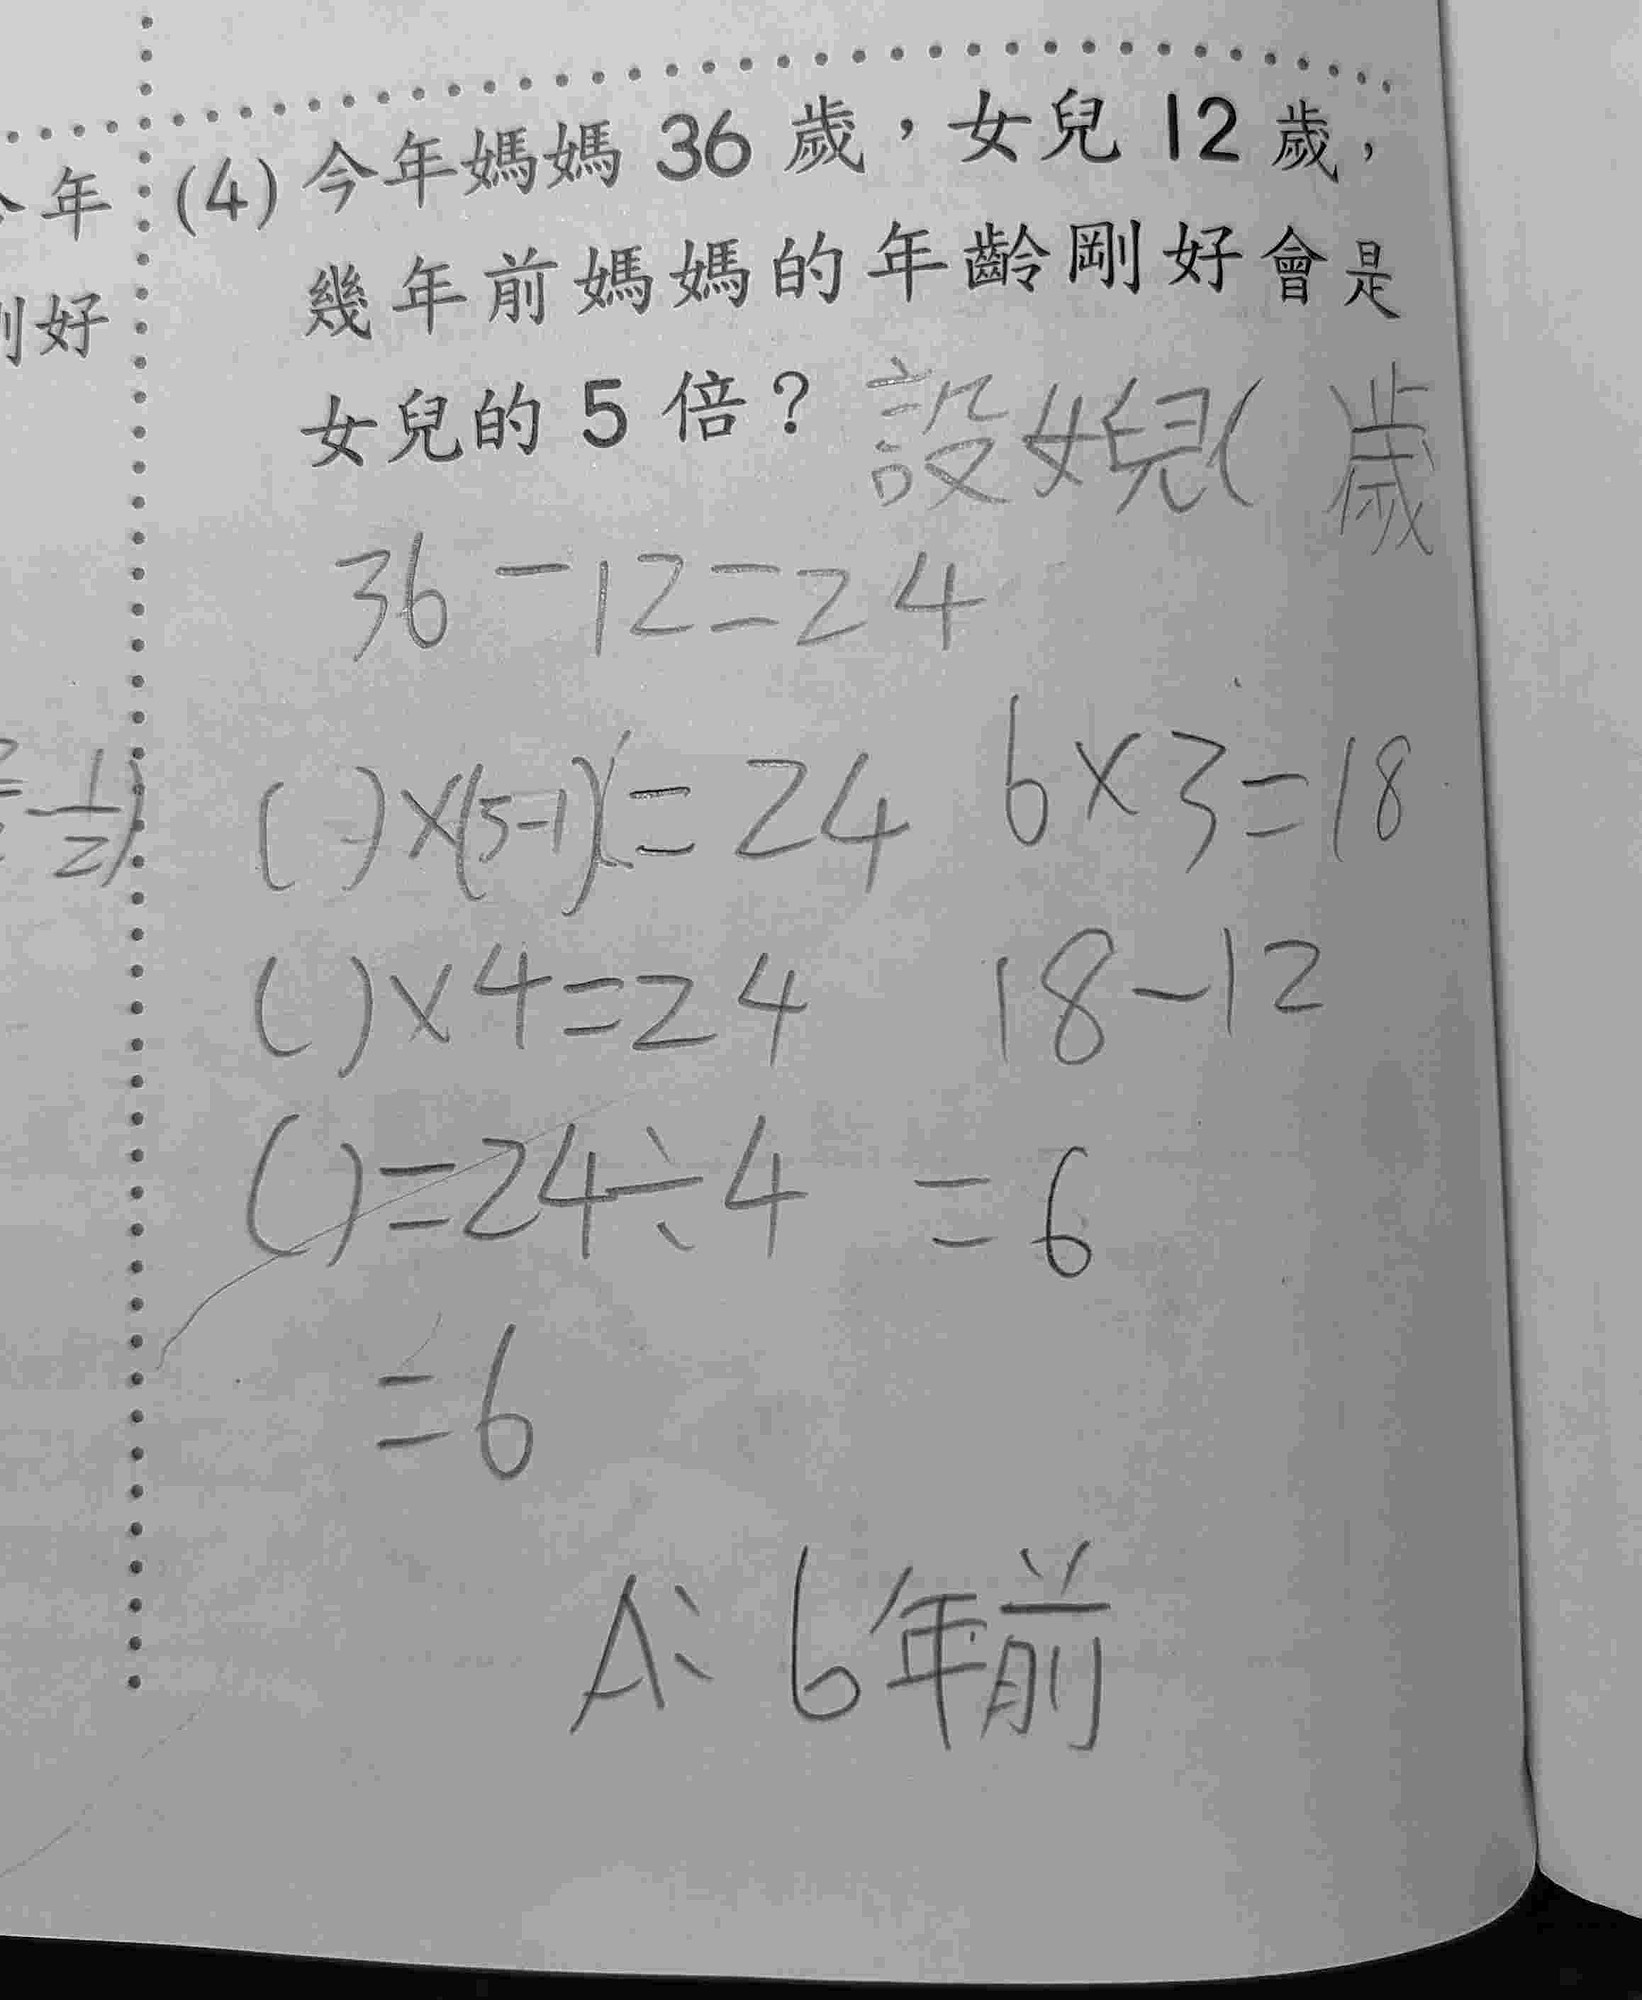 年
好
(4) 今年媽媽 36 歲，女兒 12 歲，
幾年前媽媽的年齡剛好會是
女兒的 5 倍？ 設女兒( 歲
36-12=24
( )×(5-1)=24
( )×4=24
( )=24÷4
=6
6×3=18
18-12
=6
A: 6年前
1/2)